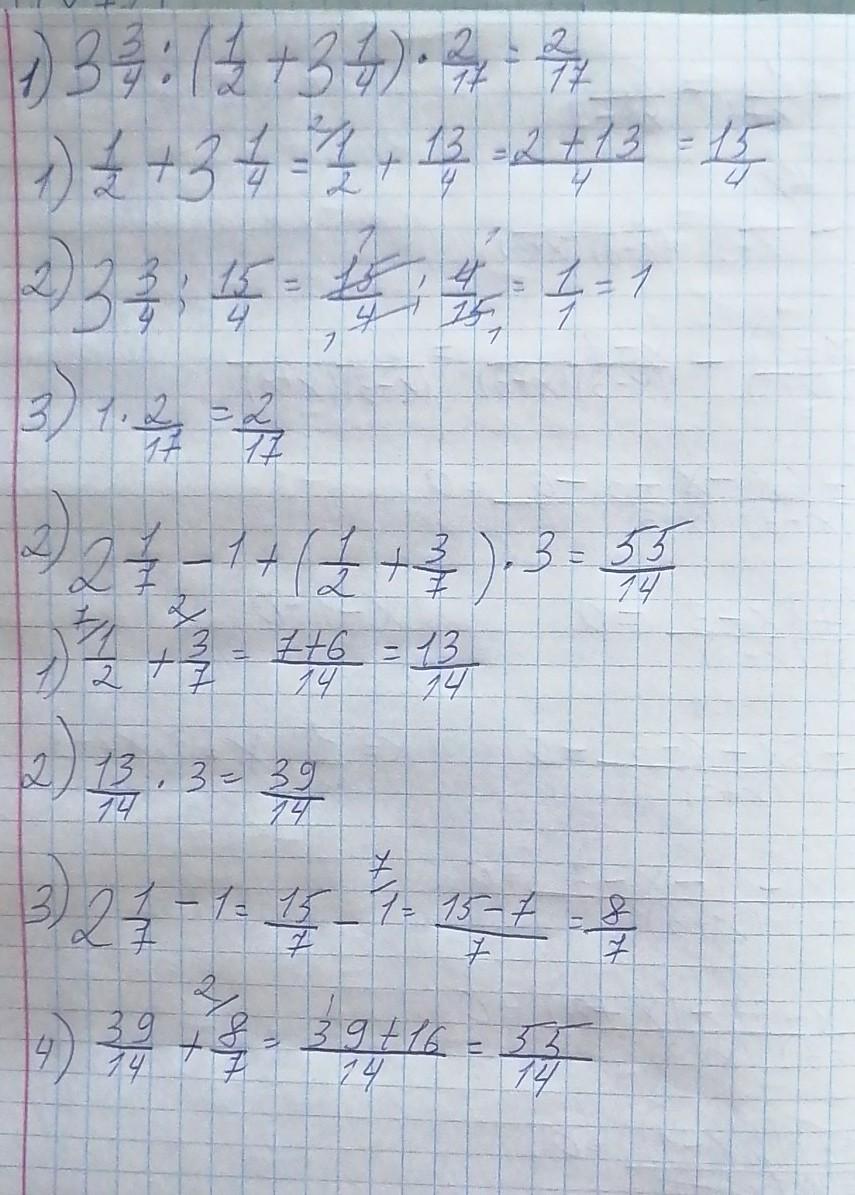 1) 3 3/4 : (1/2 + 3 1/4) · 2/17 = 2/17
1) 1/2 + 3 1/4 = 2/ 1/2 + 13/4 = 2+13/4 = 15/4
2) 3 3/4 : 15/4 = 15/4 : 4/15 = 1/1 = 1
3) 1 · 2/17 = 2/17
2) 2 1/7 - 1 + (1/2 + 3/7) · 3 = 55/14
1) 7/ 1/2 + 2/ 3/7 = 7+6/14 = 13/14
2) 13/14 · 3 = 39/14
3) 2 1/7 - 1 = 15/7 - 7/ 1 = 15-7/7 = 8/7
4) 39/14 + 2/ 8/7 = 39+16/14 = 55/14